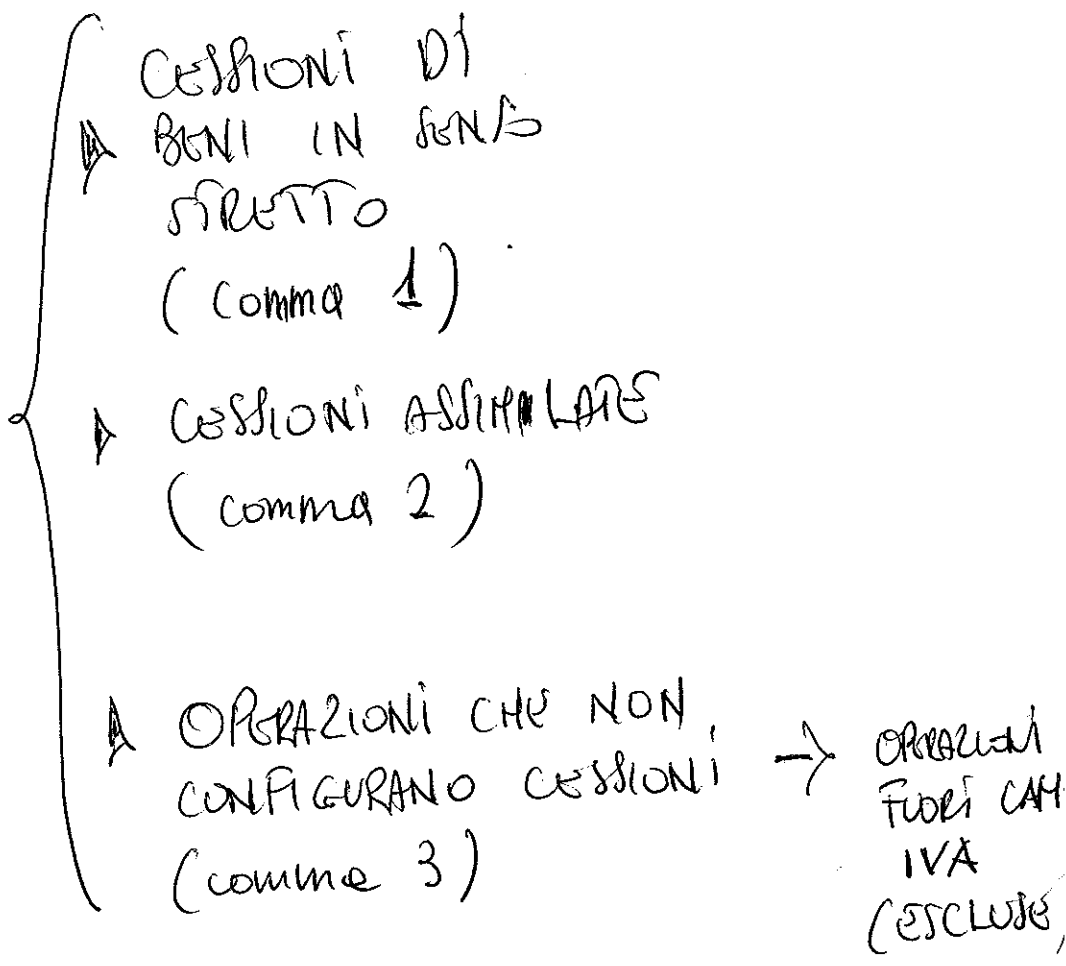 CESSIONI DI
BENI IN SENSO
STRETTO
(comma 1)
CESSIONI ASSIMILATE
(comma 2)
OPERAZIONI CHE NON
CONFIGURANO CESSIONI → OPERAZIONI
FUORI CAM
(comma 3)
IVA
(ESCLUSE,